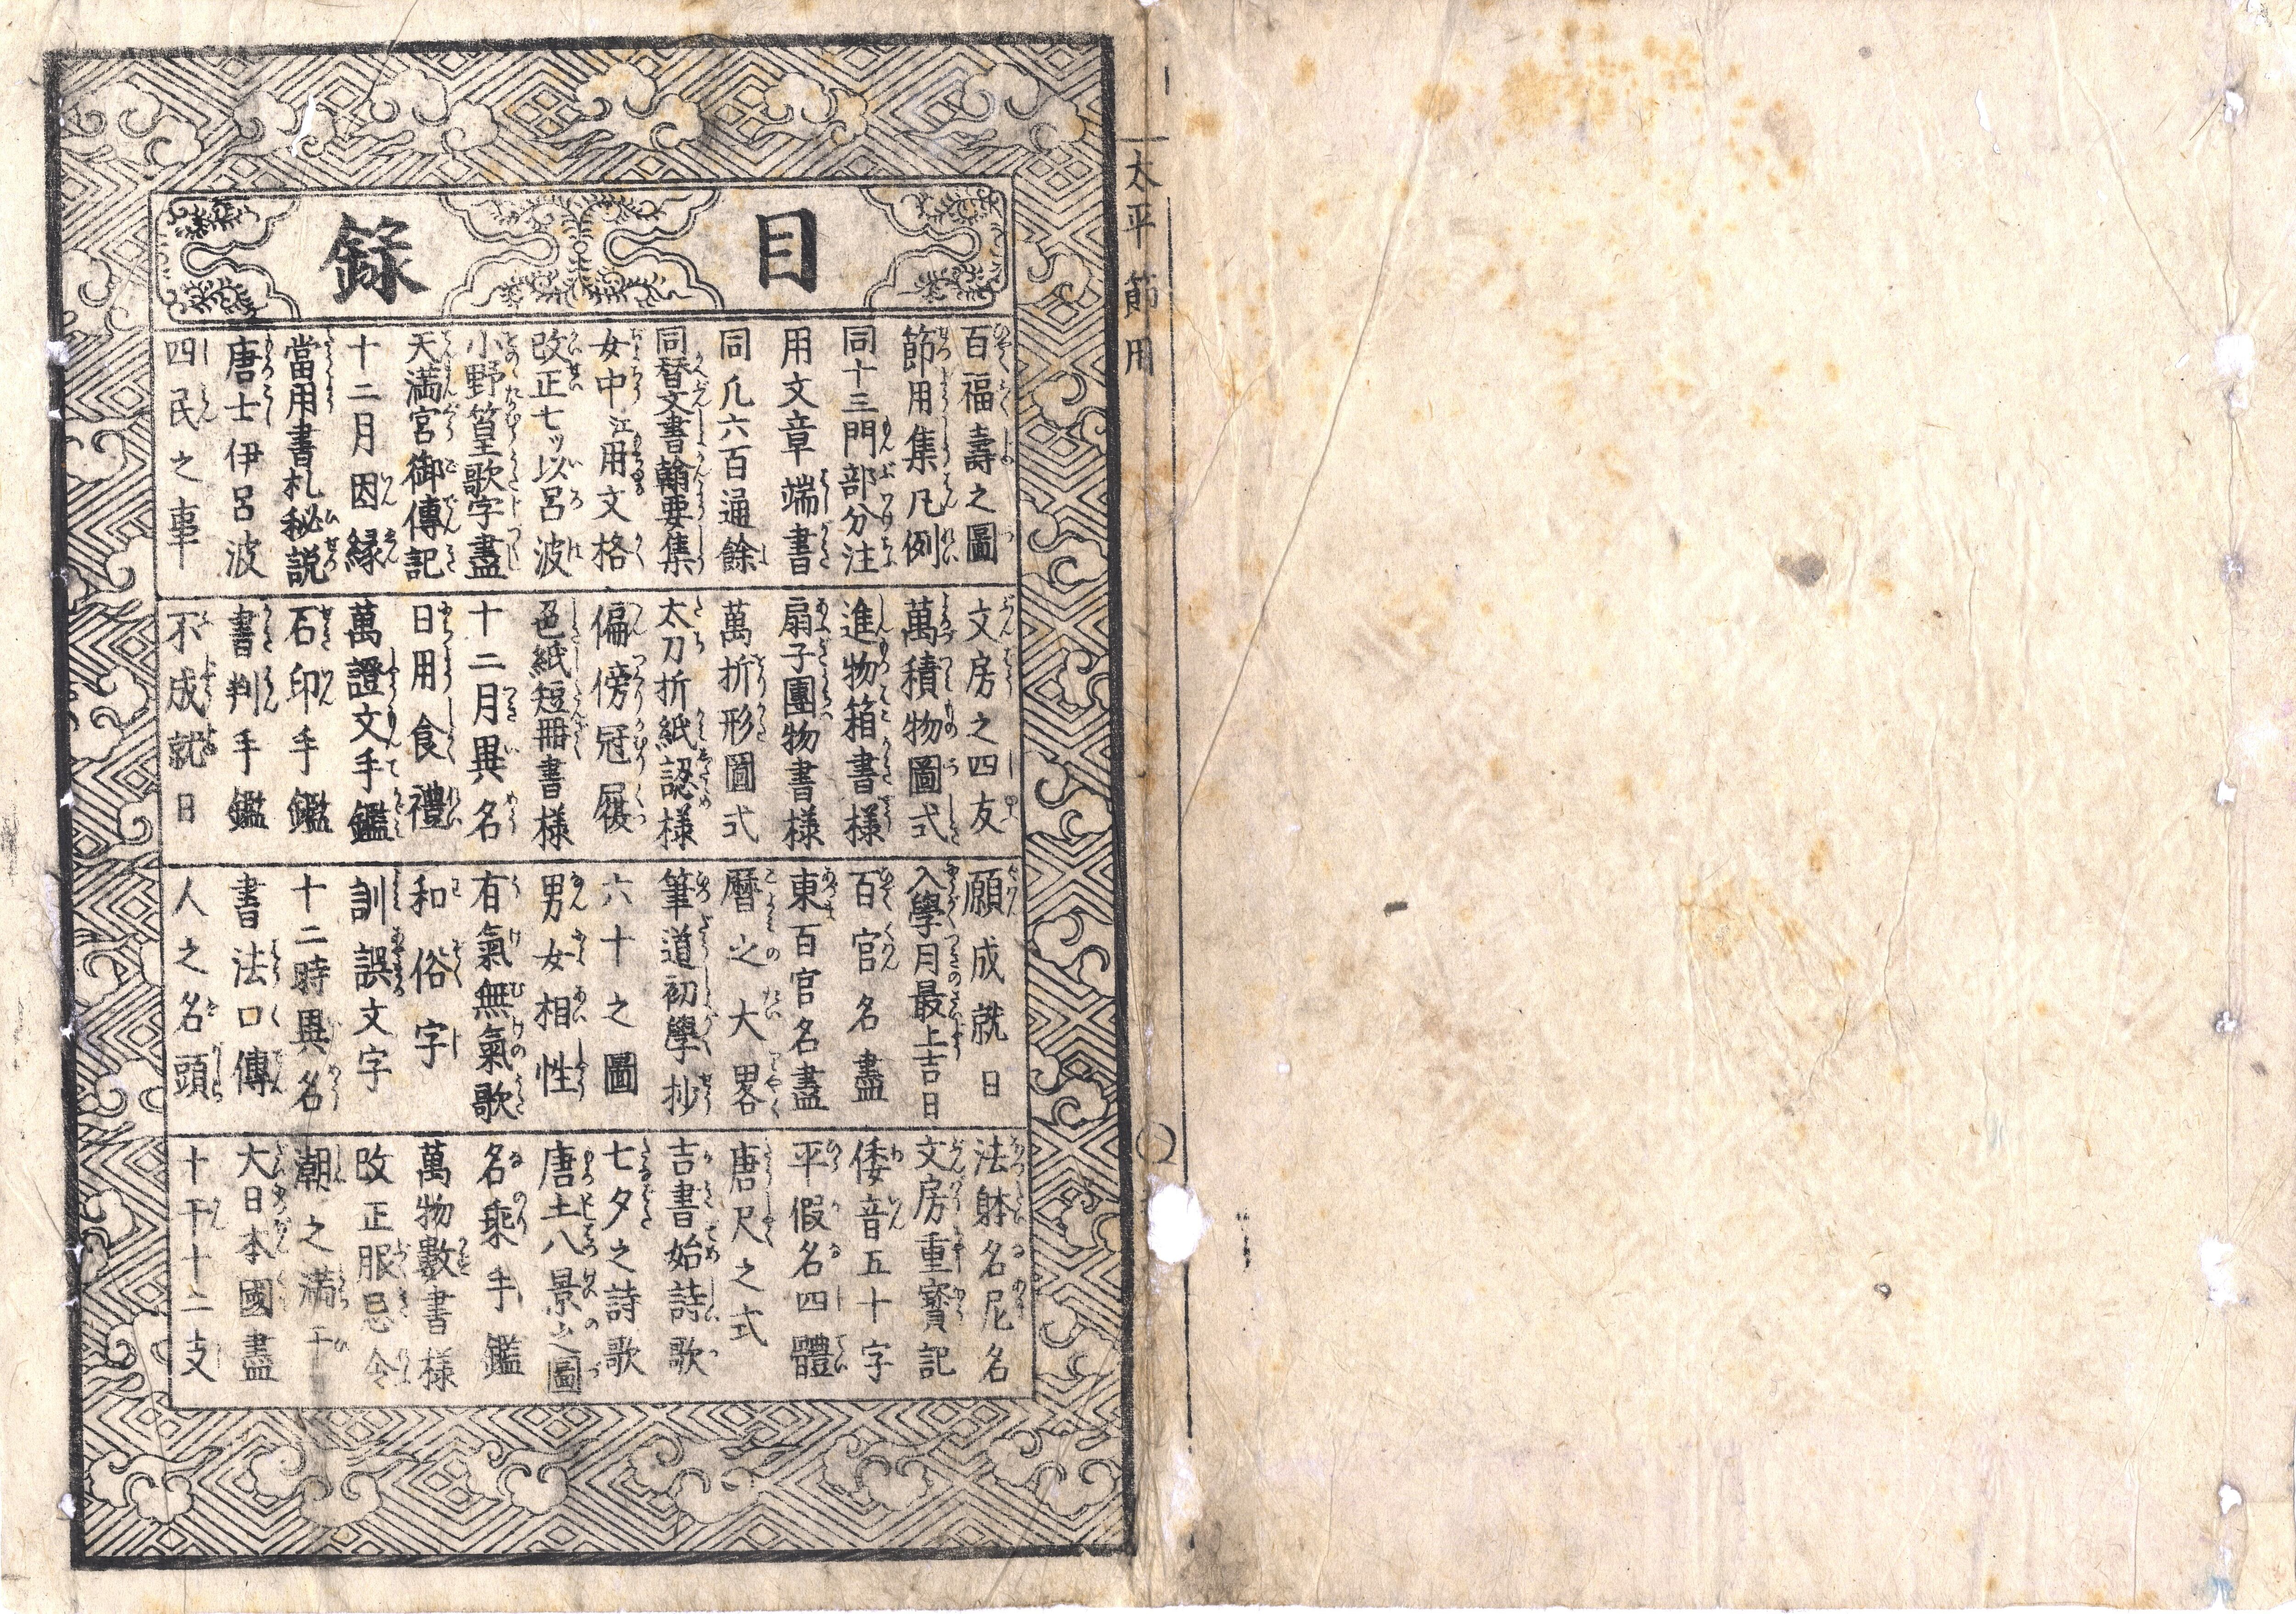 太平節用
目録
百福壽之圖
節用集凡例
同十三門部分注
用文章端書
同凢六百通餘
同替文書翰要集
女中江用文格
改正七ツ以呂波
小野篁歌字盡
天満宮御傳記
十二月因縁
當用書札秘説
唐士伊呂波
四民之事
文房之四友
萬積物圖式
進物箱書様
扇子團物書様
萬折形圖式
太刀折紙認様
偏傍冠履
色紙短冊書様
十二月異名
日用食禮
萬證文手鑑
石印手鑑
書判手鑑
不成就日
願成就日
入學月最上吉日
百官名盡
東百官名盡
暦之大畧
筆道初學抄
六十之圖
男女相性
有氣無氣歌
和俗字
訓誤文字
十二時異名
書法口傳
人之名頭
法躰名尼名
文房重寳記
倭音五十字
平假名四體
唐尺之式
吉書始詩歌
七夕之詩歌
唐土八景之圖
名乘手鑑
萬物數書様
改正服忌令
潮之満干
大日本國盡
十干十二支